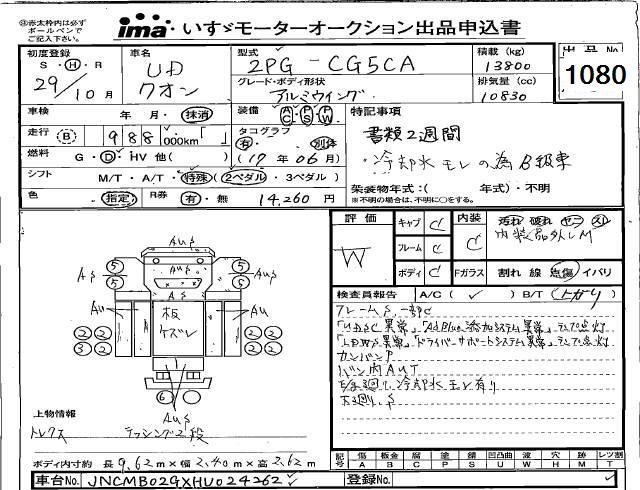 ㊟赤太枠内は必ず
ボールペンで
ご記入下さい。
ima いすゞモーターオークション出品申込書
初度登録
S・H・R
29/10月
車名
UD
クオン
型式
2PG - CG5CA
グレード・ボディ形状
アルミウイング
積載(kg)
13800
排気量(cc)
10830
出品No
1080
車検
年 月・抹消
装備
AC PS PW
特記事項
書類2週間
冷却水モレの為B級車
走行
B 988 000km「 」
タコグラフ
有 別体
(17年06月)
燃料
G・D・HV 他( )
シフト
M/T・A/T・特殊(2ペダル・3ペダル)
架装物年式:( 年式)・不明
※不明の場合は、不明に○をする。
色
指定
R券
有・無 14,260円
評価
W
キャブ C
フレーム C
ボディ C
内装
C
汚れ 破れ ヤニ スレ
内装品外しM
Fガラス
割れ 線 点傷 イバリ
検査員報告
A/C( ✓ ) B/T(上がり)
フレームS 一部C
「UDSC異常」「AdBlue添加システム異常」ランプ点灯
「LDWS異常」「ドライバーサポートシステム異常」ランプ点灯
カンバンP
バン内AUT
冷却水モレ有り
下廻りS
AuS
AuS
AuS
AS
AS
AS
5
5
5
5
Au
Au
Au
板
ケズレ
2 2
3 2
2 2
2 2
6
AuS
上物情報
トレクス
ラッシング2段
ボディ内寸約 長9.62m×幅2.40m×高2.62m
車台No. JNCMB02GXHU024262
記号
傷 板金 腐 塗 錆 凹凸曲 波 穴 跡 レツ割
A B C P S U W H M T